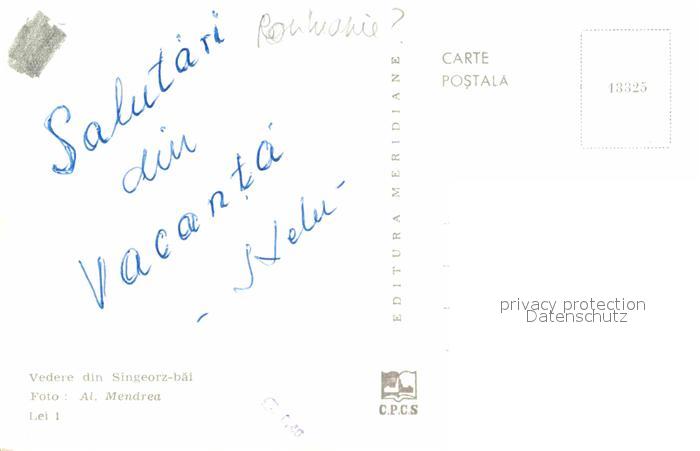 Salutări
din
vacanță
- Nelu -
Roumanie?
Vedere din Sîngeorz-băi
Foto: Al. Mendrea
Lei 1
EDITURA MERIDIANE
C.P.C.S
CARTE
POȘTALĂ
13325
privacy protection
Datenschutz